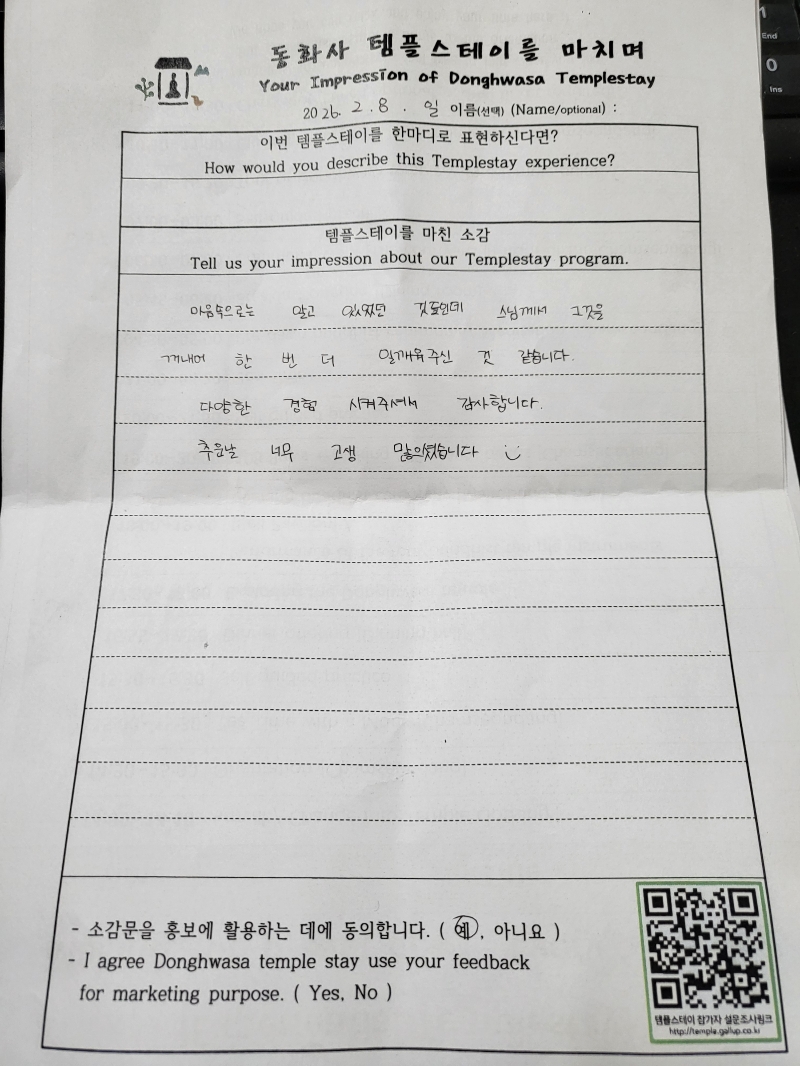 동화사 템플스테이를 마치며
Your Impression of Donghwasa Templestay
2026. 2. 8. 일 이름(선택) (Name/optional) :
이번 템플스테이를 한마디로 표현하신다면?
How would you describe this Templestay experience?
템플스테이를 마친 소감
Tell us your impression about our Templestay program.
마음속으로는 알고 있었던 것들인데 스님께서 그것을
꺼내어 한 번 더 일깨워주신 것 같습니다.
다양한 경험 시켜주셔서 감사합니다.
추운날 너무 고생 많으셨습니다
- 소감문을 홍보에 활용하는 데에 동의합니다. ( 예, 아니요 )
- I agree Donghwasa temple stay use your feedback
for marketing purpose. ( Yes, No )
템플스테이 참가자 설문조사링크
http://temple.gallup.co.kr
End
0
Ins